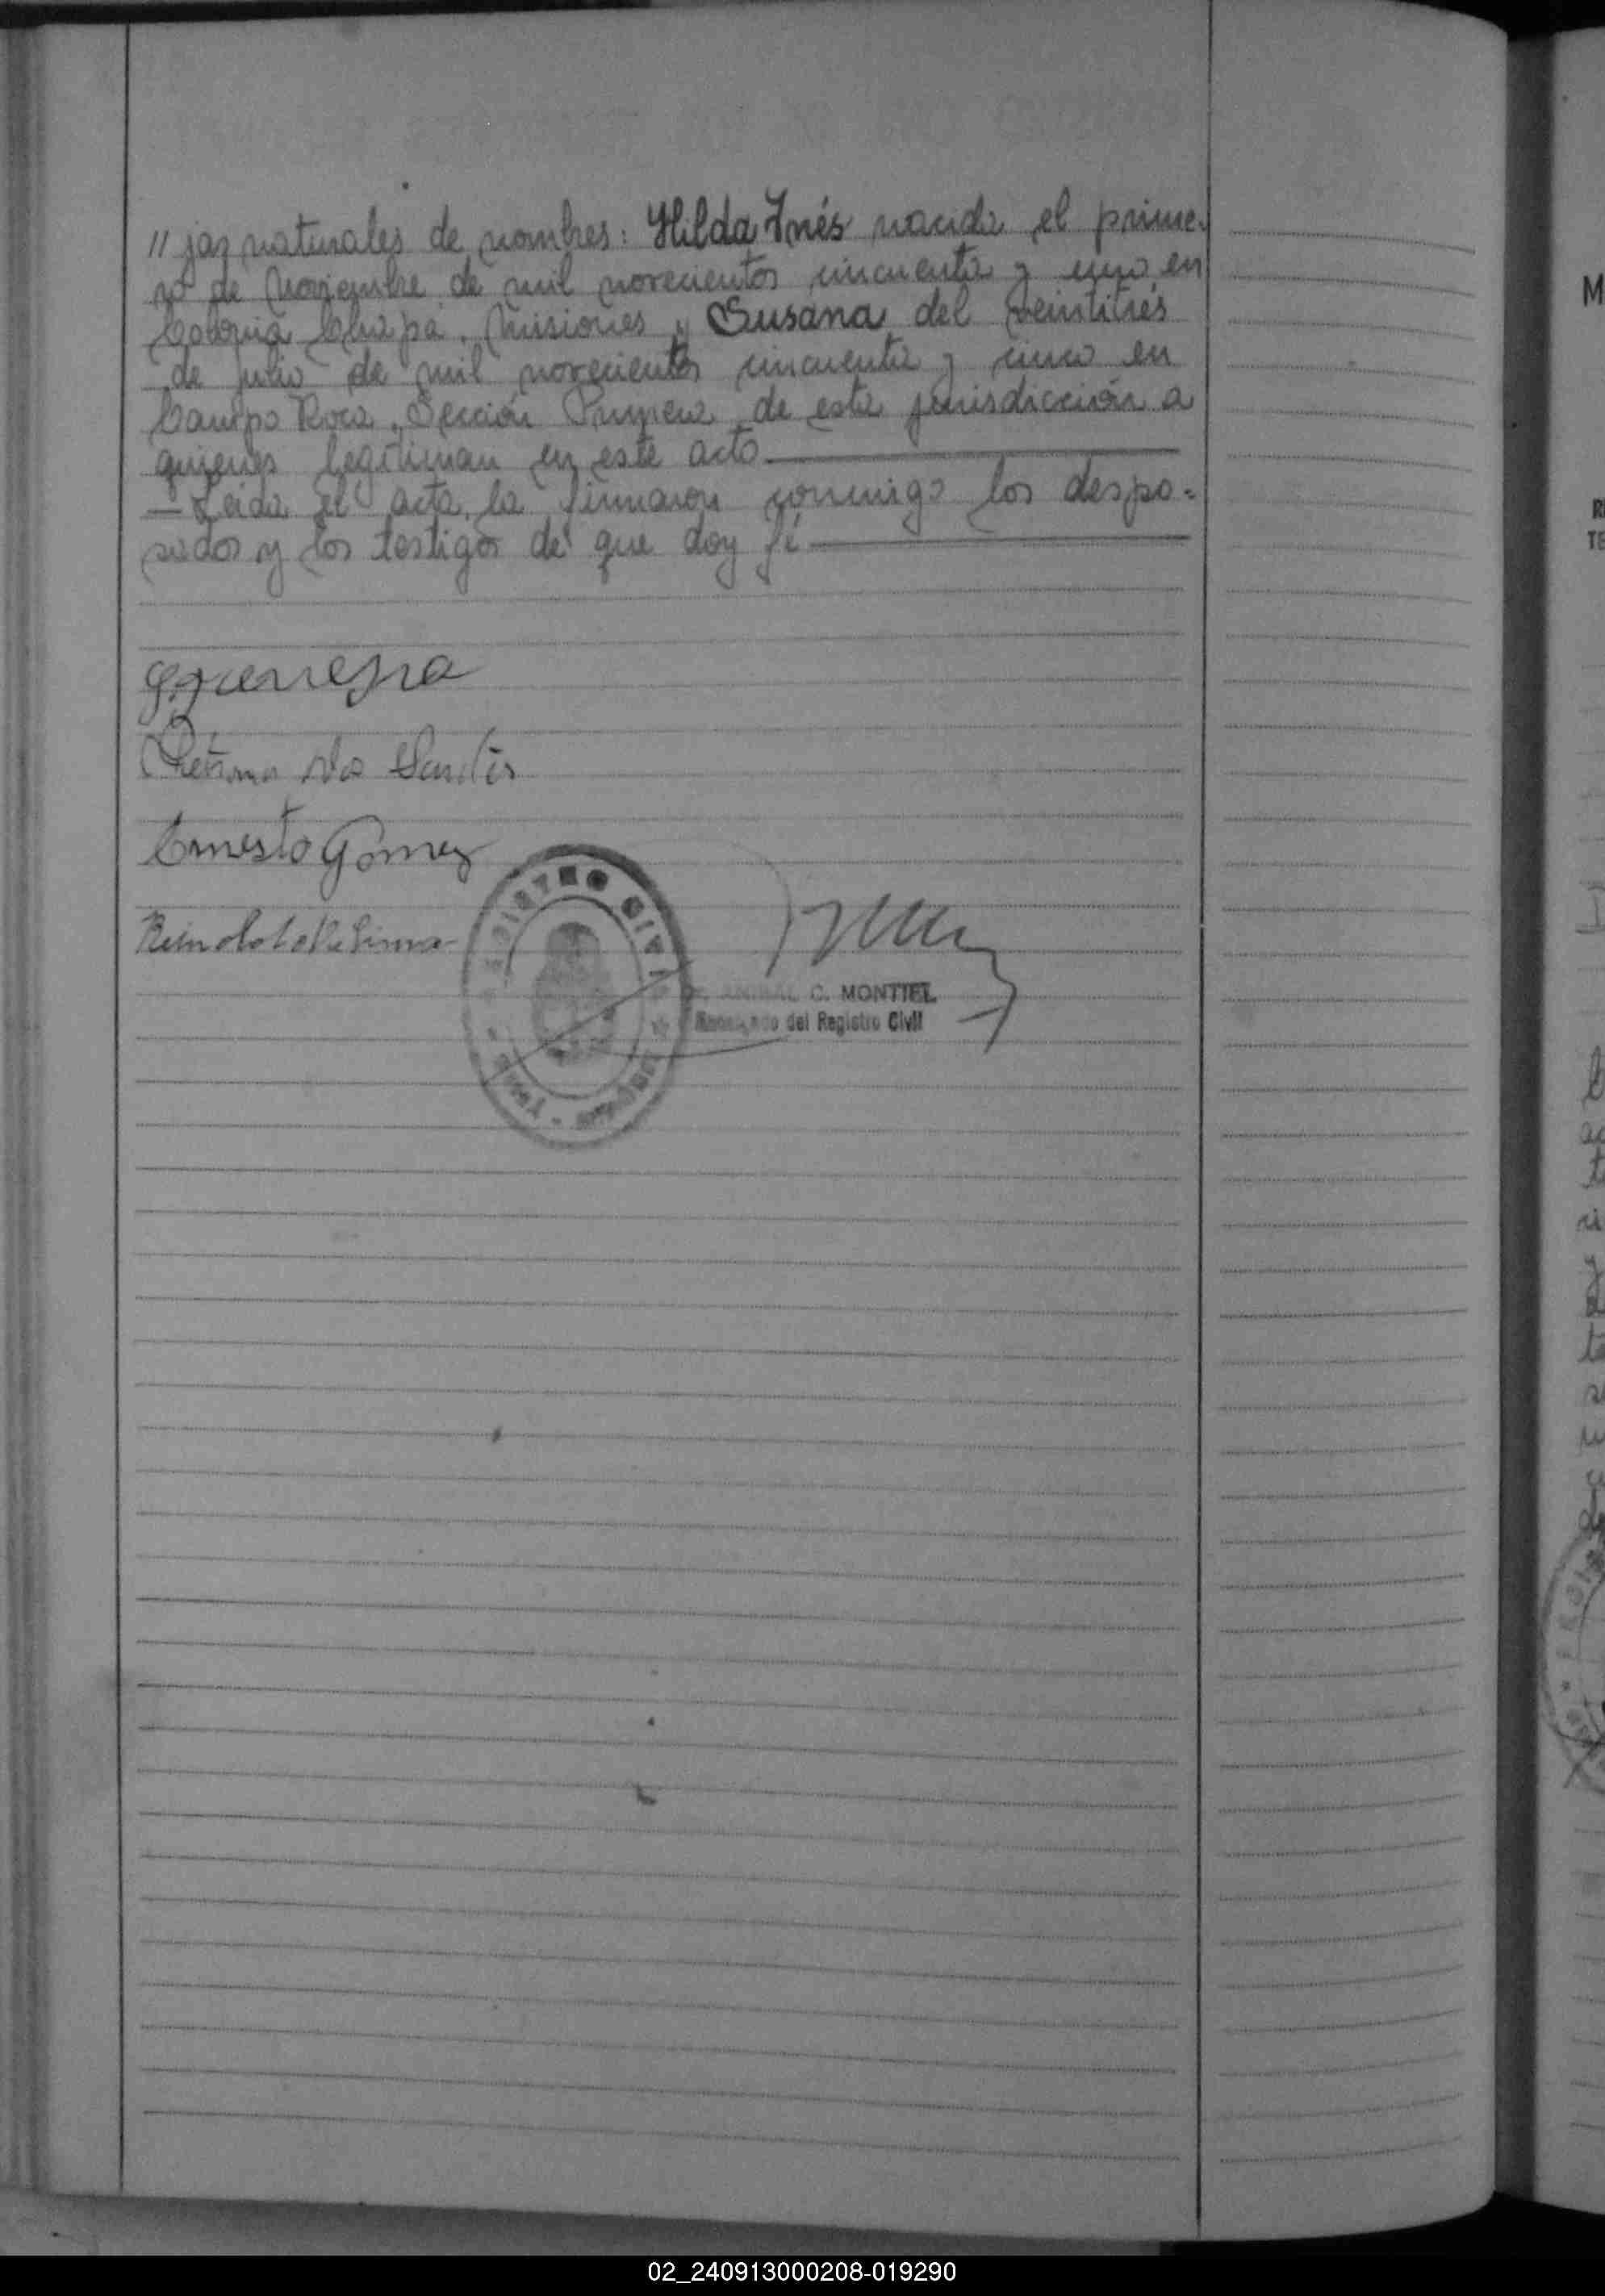 // jas naturales de nombres: Hilda Inés nacida el prime-
ro de Noviembre de mil novecientos cincuenta y uno en
Colonia Chapá, Misiones y Susana del veintitrés
de julio de mil novecientos cincuenta y cinco en
Campo Roca, Sección Primera de esta jurisdicción a
quienes legitiman en este acto
— Leída el acta, la firmaron conmigo los despo=
sados y los testigos de que doy fé
Ernesto Gómez
REGISTRO CIVIL
ANIBAL C. MONTIEL
Encargado del Registro Civil
M
02_240913000208-019290